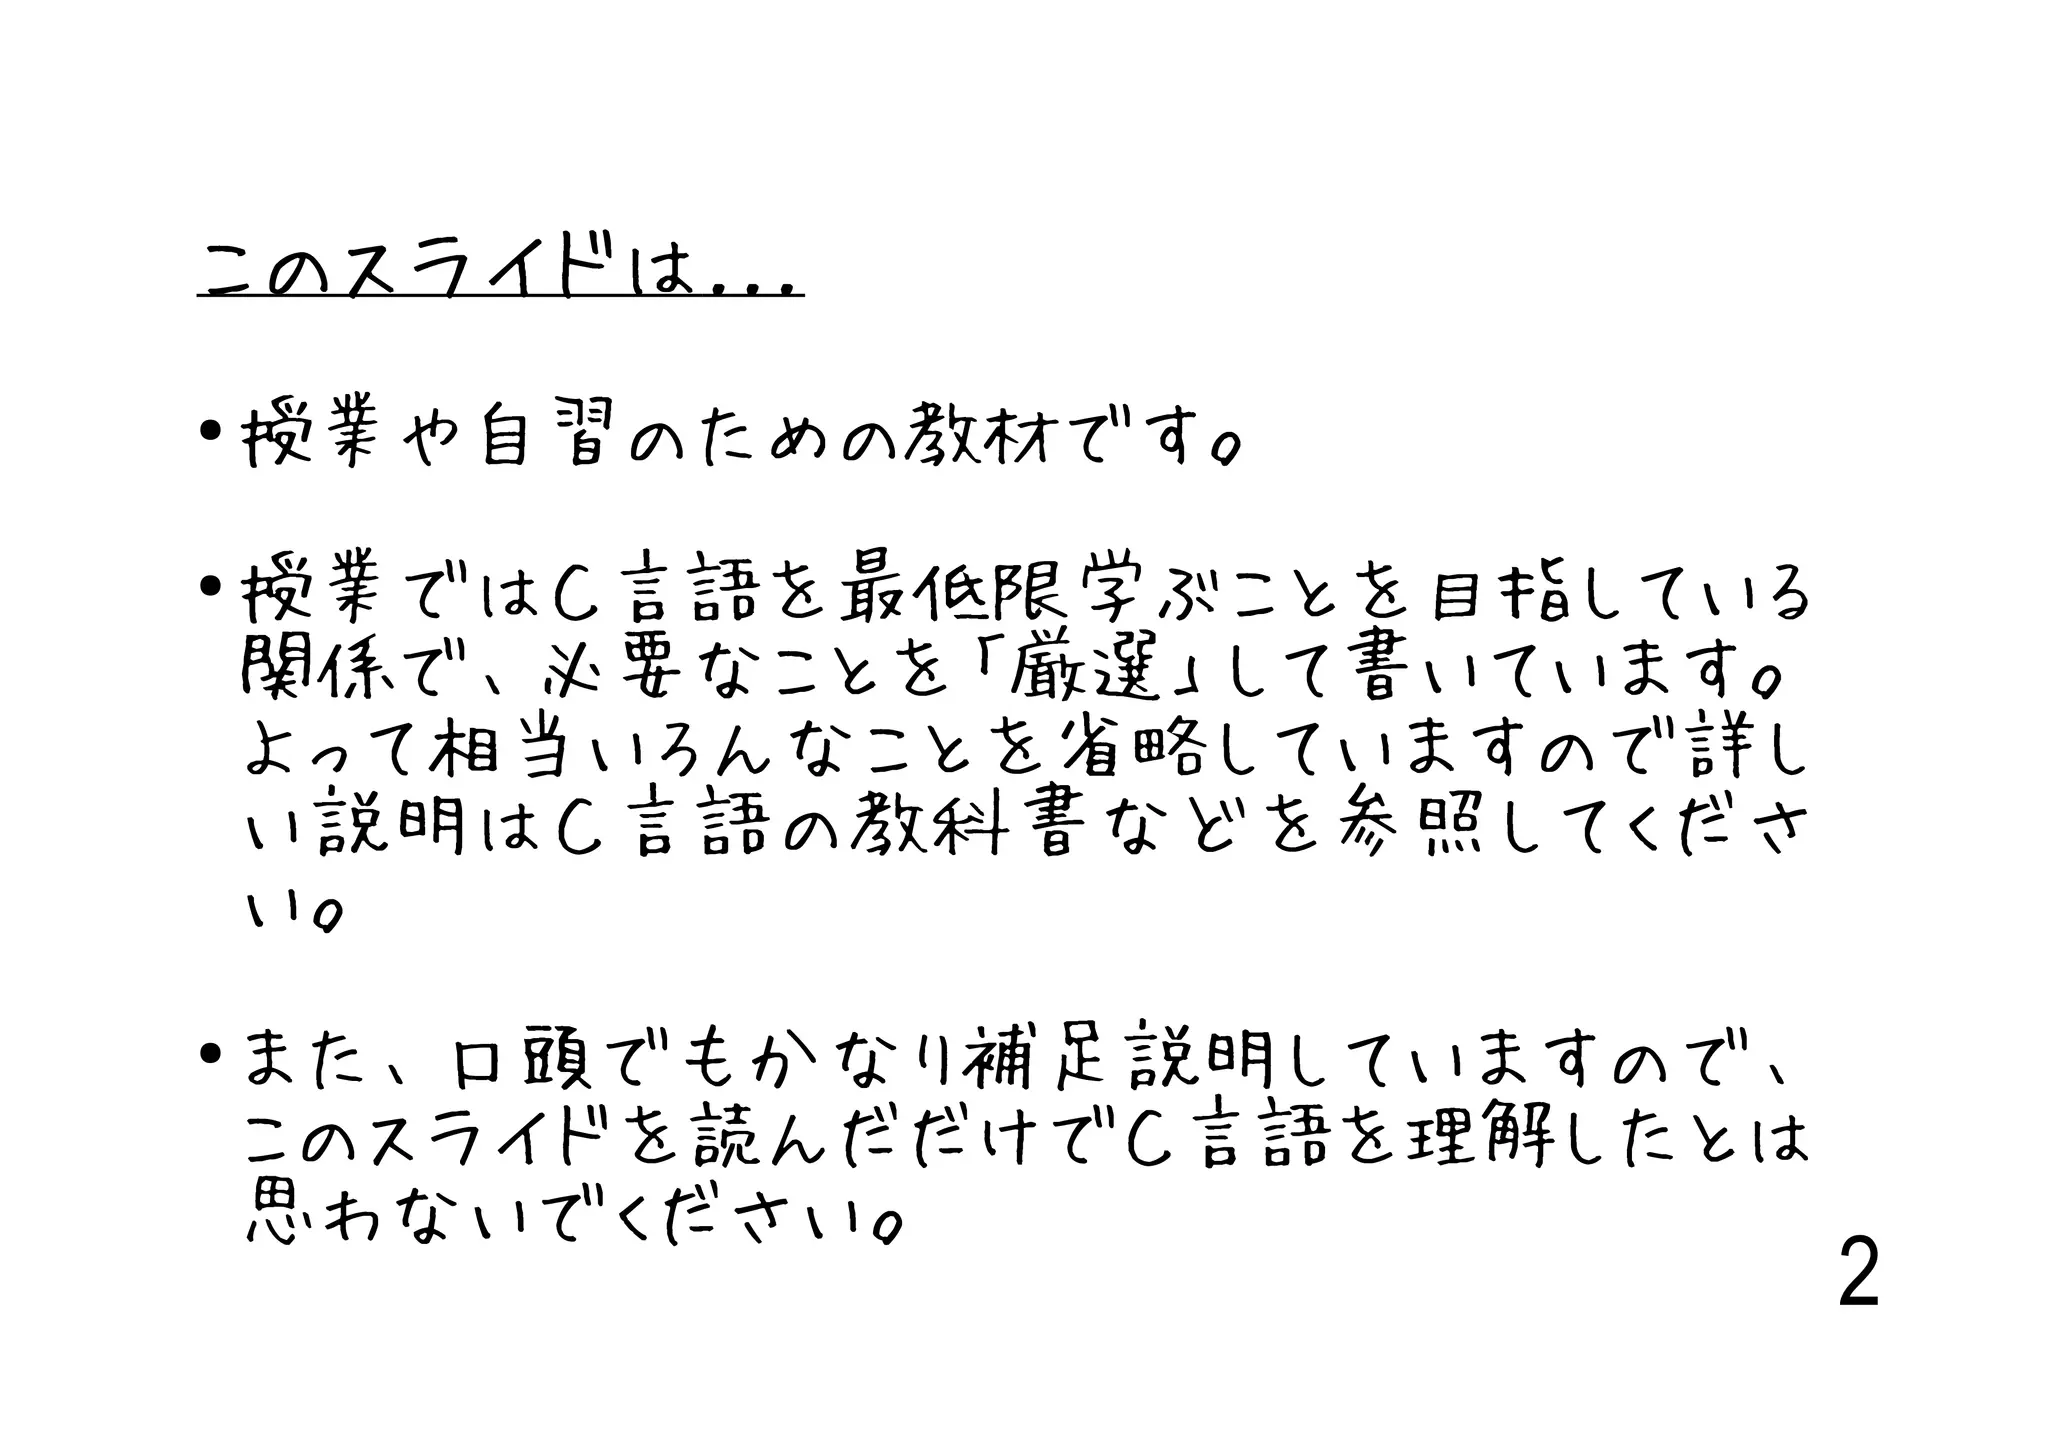 このスライドは...
•授業や自習のための教材です。
•授業ではC言語を最低限学ぶことを目指している
関係で、必要なことを「厳選」して書いています。
よって相当いろんなことを省略していますので詳し
い説明はC言語の教科書などを参照してくださ
い。
•また、口頭でもかなり補足説明していますので、
このスライドを読んだだけでC言語を理解したとは
思わないでください。
2